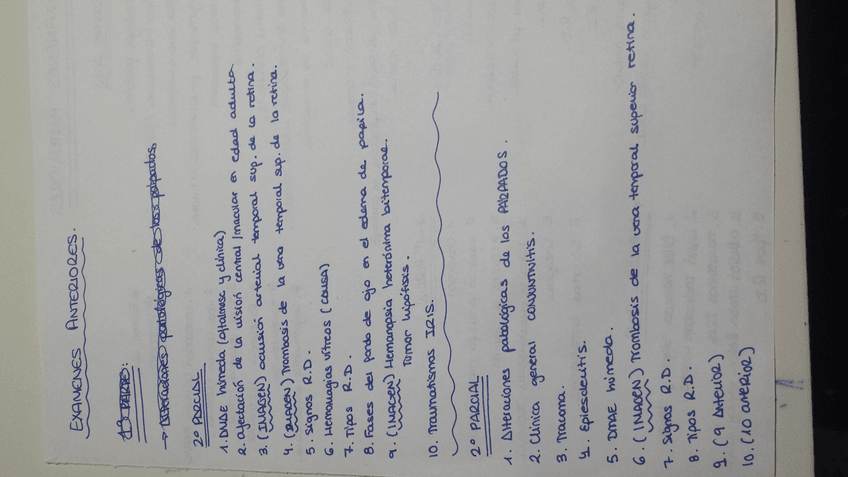 EXÁMENES ANTERIORES.
1º PARCIAL:
→ Alteraciones patológicas de los párpados
2º PARCIAL
1. DMAE húmeda (oftalmosc y clínica)
2. afectación de la visión central/macular en edad adulta
3. (IMAGEN) oclusión arterial temporal sup. de la retina.
4. (IMAGEN) Trombosis de la vena temporal sup. de la retina.
5. Signos R.D.
6. Hemorragias vítreas (causa)
7. Tipos R.D.
8. Fases del fondo de ojo en el edema de papila.
9. (IMAGEN) Hemianopsia heterónima bitemporal.
Tumor hipófisis.
10. Traumatismos IRIS.
2º PARCIAL
1. Alteraciones patológicas de los PÁRPADOS.
2. Clínica general CONJUNTIVITIS.
3. Tracoma.
4. Epiescleritis.
5. DMAE húmeda.
6. (IMAGEN) Trombosis de la vena temporal superior retina.
7. Signos R.D.
8. Tipos R.D.
9. (9 Anterior)
10. (10 anterior)